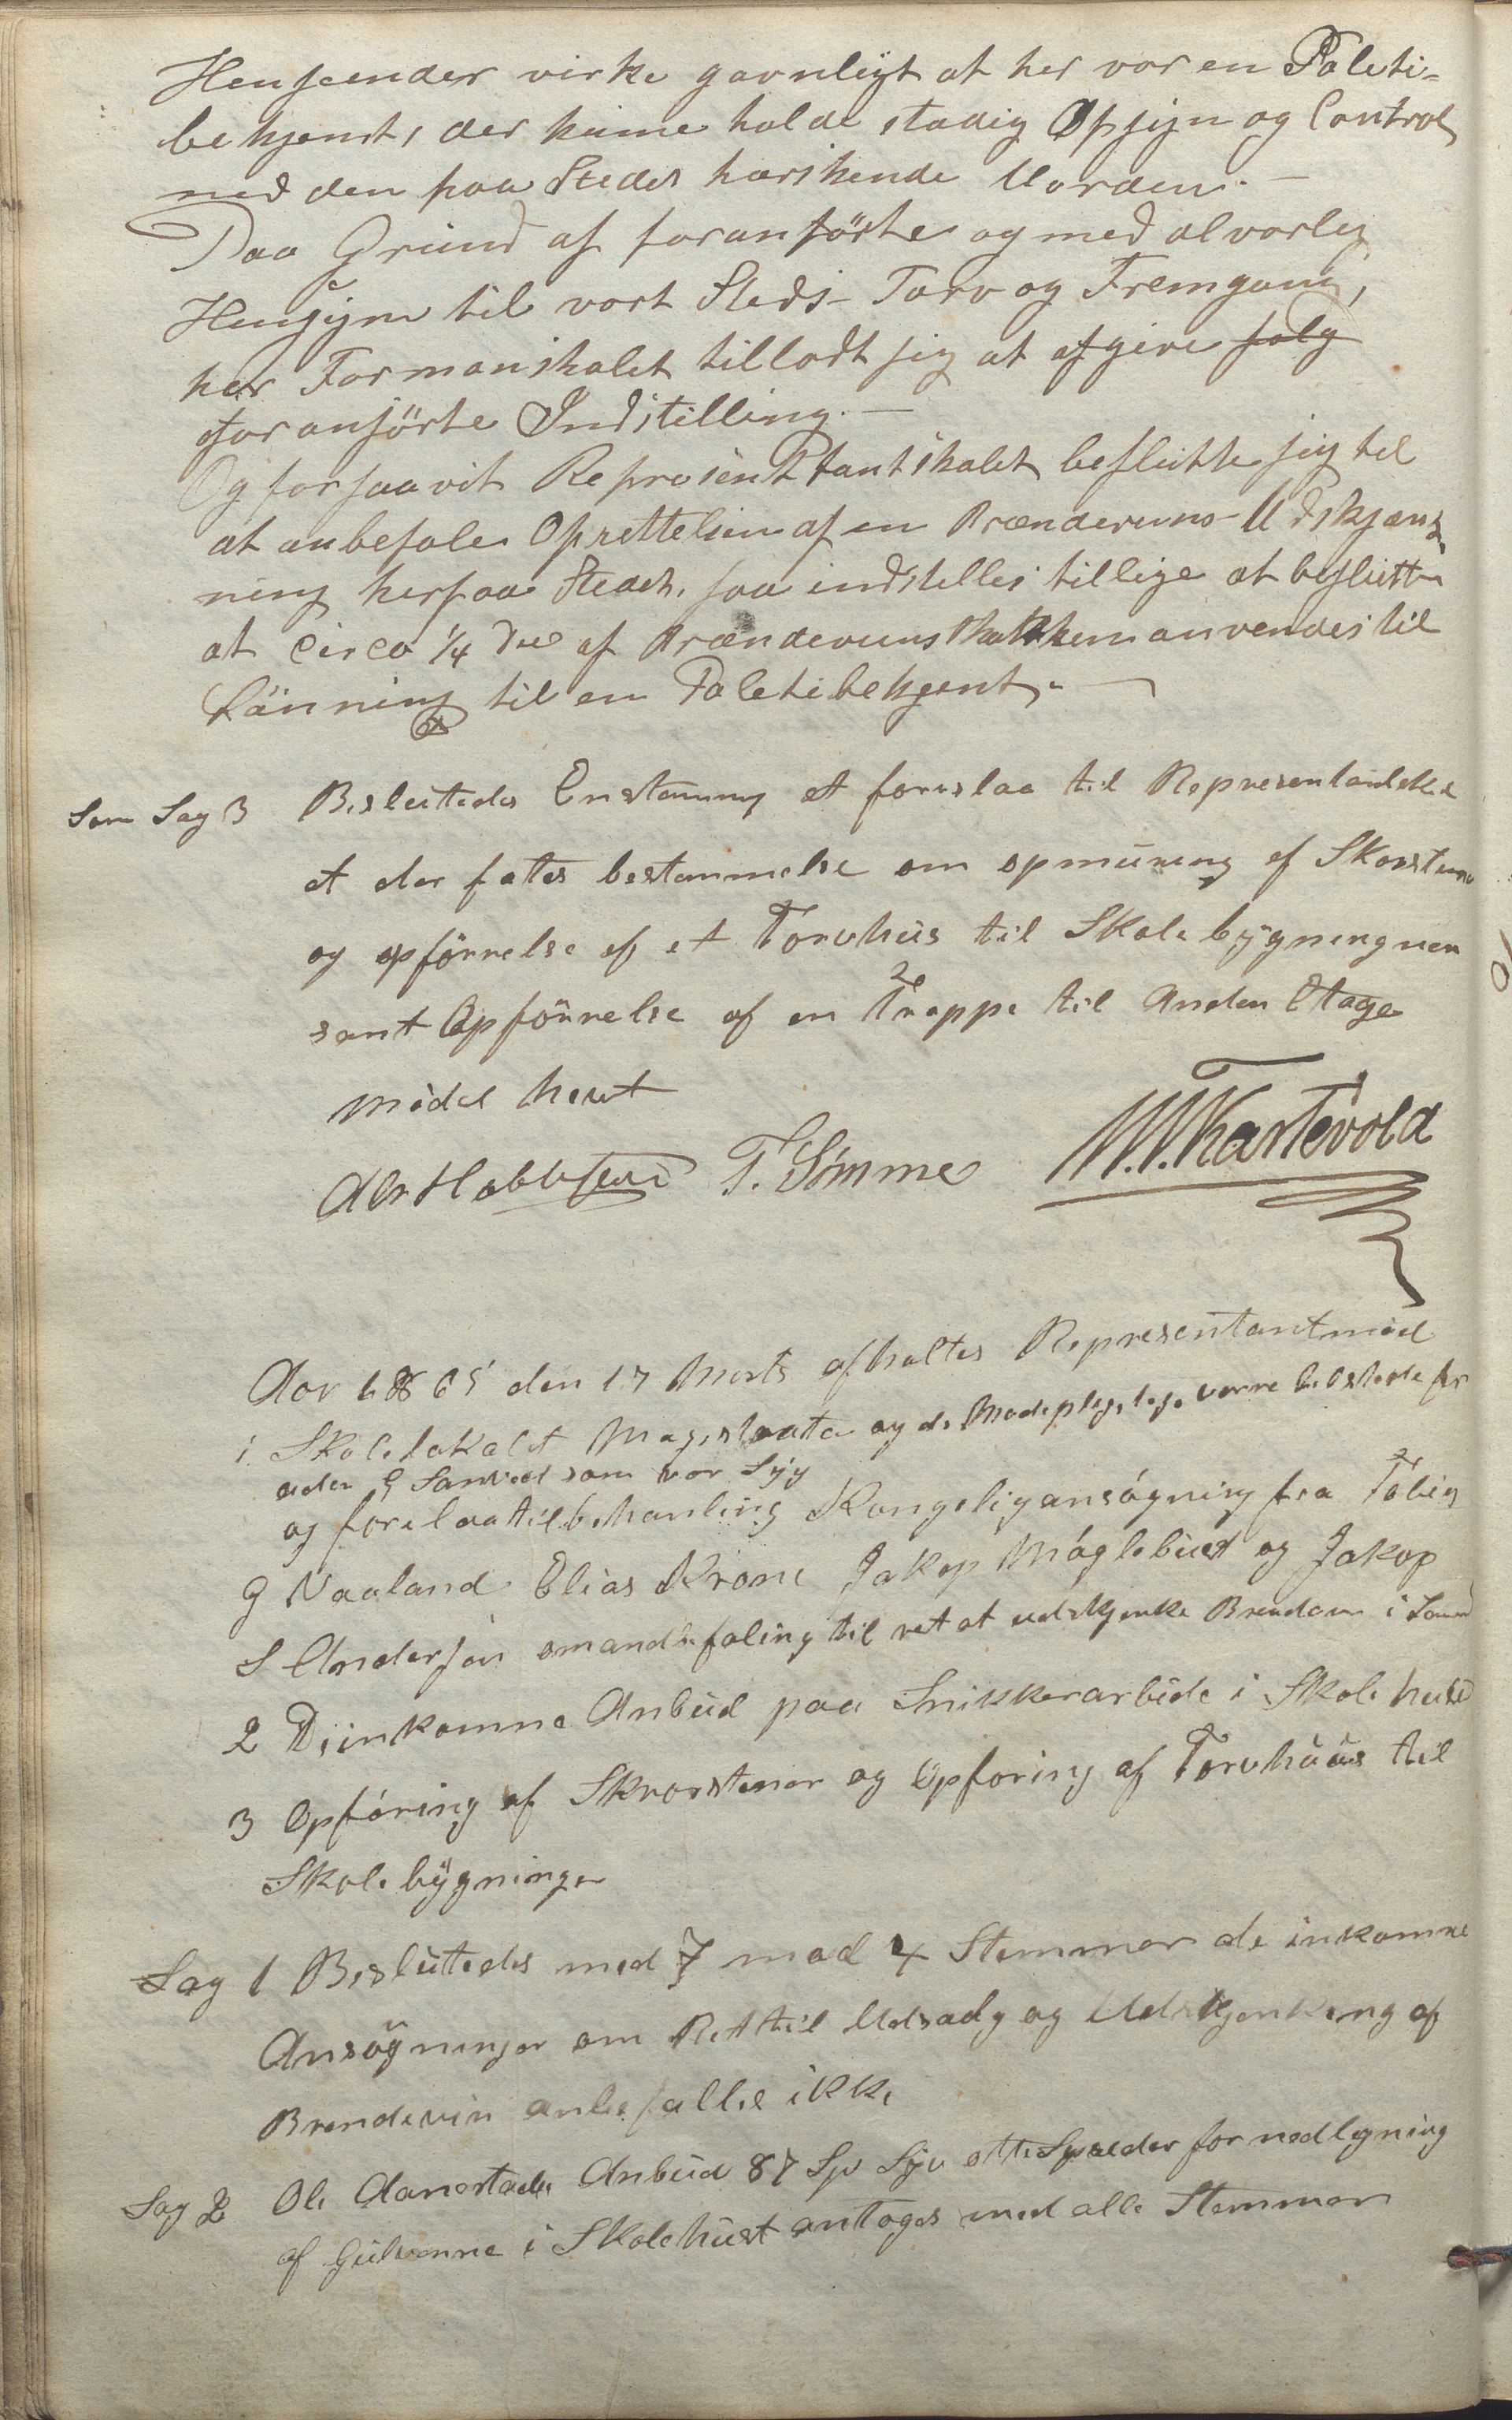 Henseender virke gavnligt at her var en Politi-
betjent, der kunne holde stadig Opsyn og Control
med den paa Stedet herskende Uorden. —
Paa Grund af foranførte og med alvorlig
Hensyn til vort Steds Tarv og Fremgang,
har Formanskabet tilladt sig at afgive følg
foranförte Indstilling. —
Og forsaavit Representtantskabet beslutte sig til
at anbefale Oprettelsen af en Brændevins-Udskjænk
ning herpaa Stedet, saa indstilles tillige at beslutte
at circa 1/4 Del af Brændevinsskatten anvendes til
Lönning til en Politibetjent. —
Som Sag 3 Besluteds Enstemmig at foreslaa til Representandsk
at der fates bestemmelse om opmuring af Skorstene
og opförrelse af et Torvhus til Skole bygningnen
samt Opförrelse af en Trappe til Anden Etage
mödet hevt
T. Simme
Aar 1865 den 17 Marts afholtes Representantmöd
i Skolelokalet Magistrata og de Mødepligtige varre tilstede for
uden G Sandved som var Syg
og forelaa til behanling Kongeligansøgning fra Tobias
G Vaaland Elias Krone Jakop Möglebust og Jakop
S Andersen om andbefaling til ret at udskjenke Brendevin i Sand
2 De inkomne Anbud paa Snikkerarbeide i Skole huset
3 Opföring af Skrorstener og Opforing af Torvhuus til
Skole bygningen
Sag 1 Besluteds med 7 mod 4 Stemmer de inkomne
Ansögninger om Ret til Udsalg og Udskjenkning af
Brendevin anbefalles ikke
Sag 2 Ole Aanestads Anbud 87 Sp Syv otti Speeder for nedlegning
af Gulvenne i Skolehust antoges med alle Stemmer